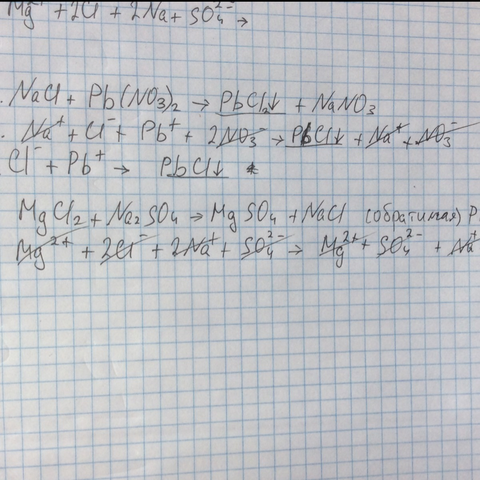 Mg + 2Cl + 2Na + SO₄²⁻ →
. NaCl + Pb(NO₃)₂ → PbCl₂↓ + NaNO₃
. Na⁺ + Cl⁻ + Pb⁺ + 2NO₃⁻ → PbCl↓ + Na⁺ + NO₃⁻
Cl⁻ + Pb⁺ → PbCl↓
MgCl₂ + Na₂SO₄ → MgSO₄ + NaCl (обратимая) Р
Mg²⁺ + 2Cl⁻ + 2Na⁺ + SO₄²⁻ → Mg²⁺ + SO₄²⁻ + Na⁺